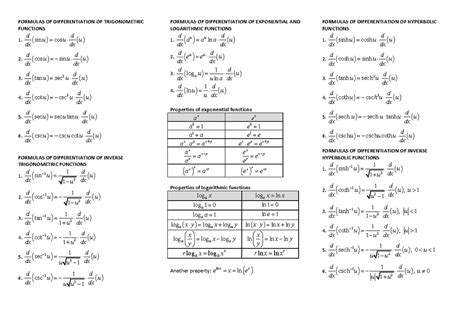 FORMULAS OF DIFFERENTIATION OF TRIGONOMETRIC
FUNCTIONS
1. d/dx (sinu) = cosu · d/dx (u)
2. d/dx (cosu) = −sinu · d/dx (u)
3. d/dx (tanu) = sec² u · d/dx (u)
4. d/dx (cotu) = −csc² u · d/dx (u)
5. d/dx (secu) = secu tanu · d/dx (u)
6. d/dx (cscu) = −cscu cotu · d/dx (u)
FORMULAS OF DIFFERENTIATION OF INVERSE
TRIGONOMETRIC FUNCTIONS
1. d/dx (sin⁻¹ u) = 1/√(1−u²) · d/dx (u)
2. d/dx (cos⁻¹ u) = − 1/√(1−u²) · d/dx (u)
3. d/dx (tan⁻¹ u) = 1/(1+u²) · d/dx (u)
4. d/dx (cot⁻¹ u) = − 1/(1+u²) · d/dx (u)
5. d/dx (sec⁻¹ u) = 1/(u√(u²−1)) · d/dx (u)
6. d/dx (csc⁻¹ u) = − 1/(u√(u²−1)) · d/dx (u)
FORMULAS OF DIFFERENTIATION OF EXPONENTIAL AND
LOGARITHMIC FUNCTIONS
1. d/dx (aᵘ) = aᵘ ln a · d/dx (u)
2. d/dx (eᵘ) = eᵘ · d/dx (u)
3. d/dx (logₐ u) = 1/(u ln a) · d/dx (u)
4. d/dx (lnu) = 1/u · d/dx (u)
Properties of exponential functions
aˣ eˣ
a⁰ = 1 e⁰ = 1
a¹ = a e¹ = e
aˣ · aʸ = aˣ⁺ʸ eˣ · eʸ = eˣ⁺ʸ
aˣ/aʸ = aˣ⁻ʸ eˣ/eʸ = eˣ⁻ʸ
(aˣ)ʸ = aˣʸ (eˣ)ʸ = eˣʸ
Properties of logarithmic functions
logₐ x logₑ x = ln x
logₐ 1 = 0 ln 1 = 0
logₐ a = 1 ln e = 1
logₐ (x·y) = logₐ x + logₐ y ln (x·y) = ln x + ln y
logₐ (x/y) = logₐ x − logₐ y ln (x/y) = ln x − ln y
r logₐ x = logₐ xʳ r ln x = ln xʳ
Another property:
FORMULAS OF DIFFERENTIATION OF HYPERBOLIC
FUNCTIONS
1. d/dx (sinhu) = coshu · d/dx (u)
2. d/dx (coshu) = sinhu · d/dx (u)
3. d/dx (tanhu) = sech² u · d/dx (u)
4. d/dx (cothu) = −csch² u · d/dx (u)
5. d/dx (sech u) = −sech u tanhu · d/dx (u)
6. d/dx (cschu) = −cschu cothu · d/dx (u)
FORMULAS OF DIFFERENTIATION OF INVERSE
HYPERBOLIC FUNCTIONS
1. d/dx (sinh⁻¹ u) = 1/√(1+u²) · d/dx (u)
2. d/dx (cosh⁻¹ u) = 1/√(u²−1) · d/dx (u), u > 1
3. d/dx (tanh⁻¹ u) = 1/(1−u²) · d/dx (u), |u| < 1
4. d/dx (coth⁻¹ u) = 1/(1−u²) · d/dx (u), |u| > 1
5. d/dx (sech⁻¹ u) = − 1/(u√(1−u²)) · d/dx (u), 0 < u < 1
6. d/dx (csch⁻¹ u) = − 1/(|u|√(1+u²)) · d/dx (u), u ≠ 0